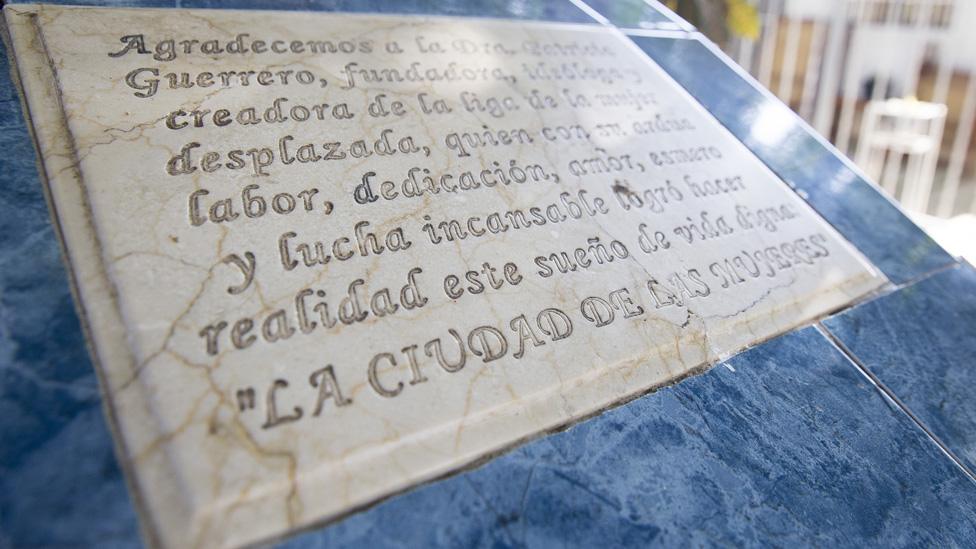 Agradecemos a la Dra. Gabriela
Guerrero, fundadora, ideóloga y
creadora de la liga de la mujer
desplazada, quien con su ardua
labor, dedicación, amor, esmero
y lucha incansable logró hacer
realidad este sueño de vida digna:
"LA CIUDAD DE LAS MUJERES"